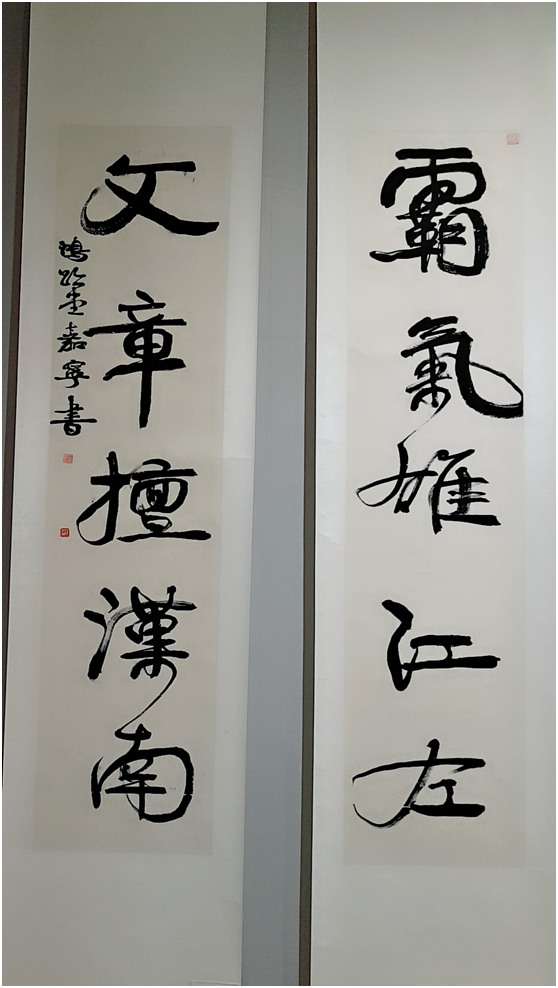 霸氣雄江左
文章擅漢南
嘉寧書